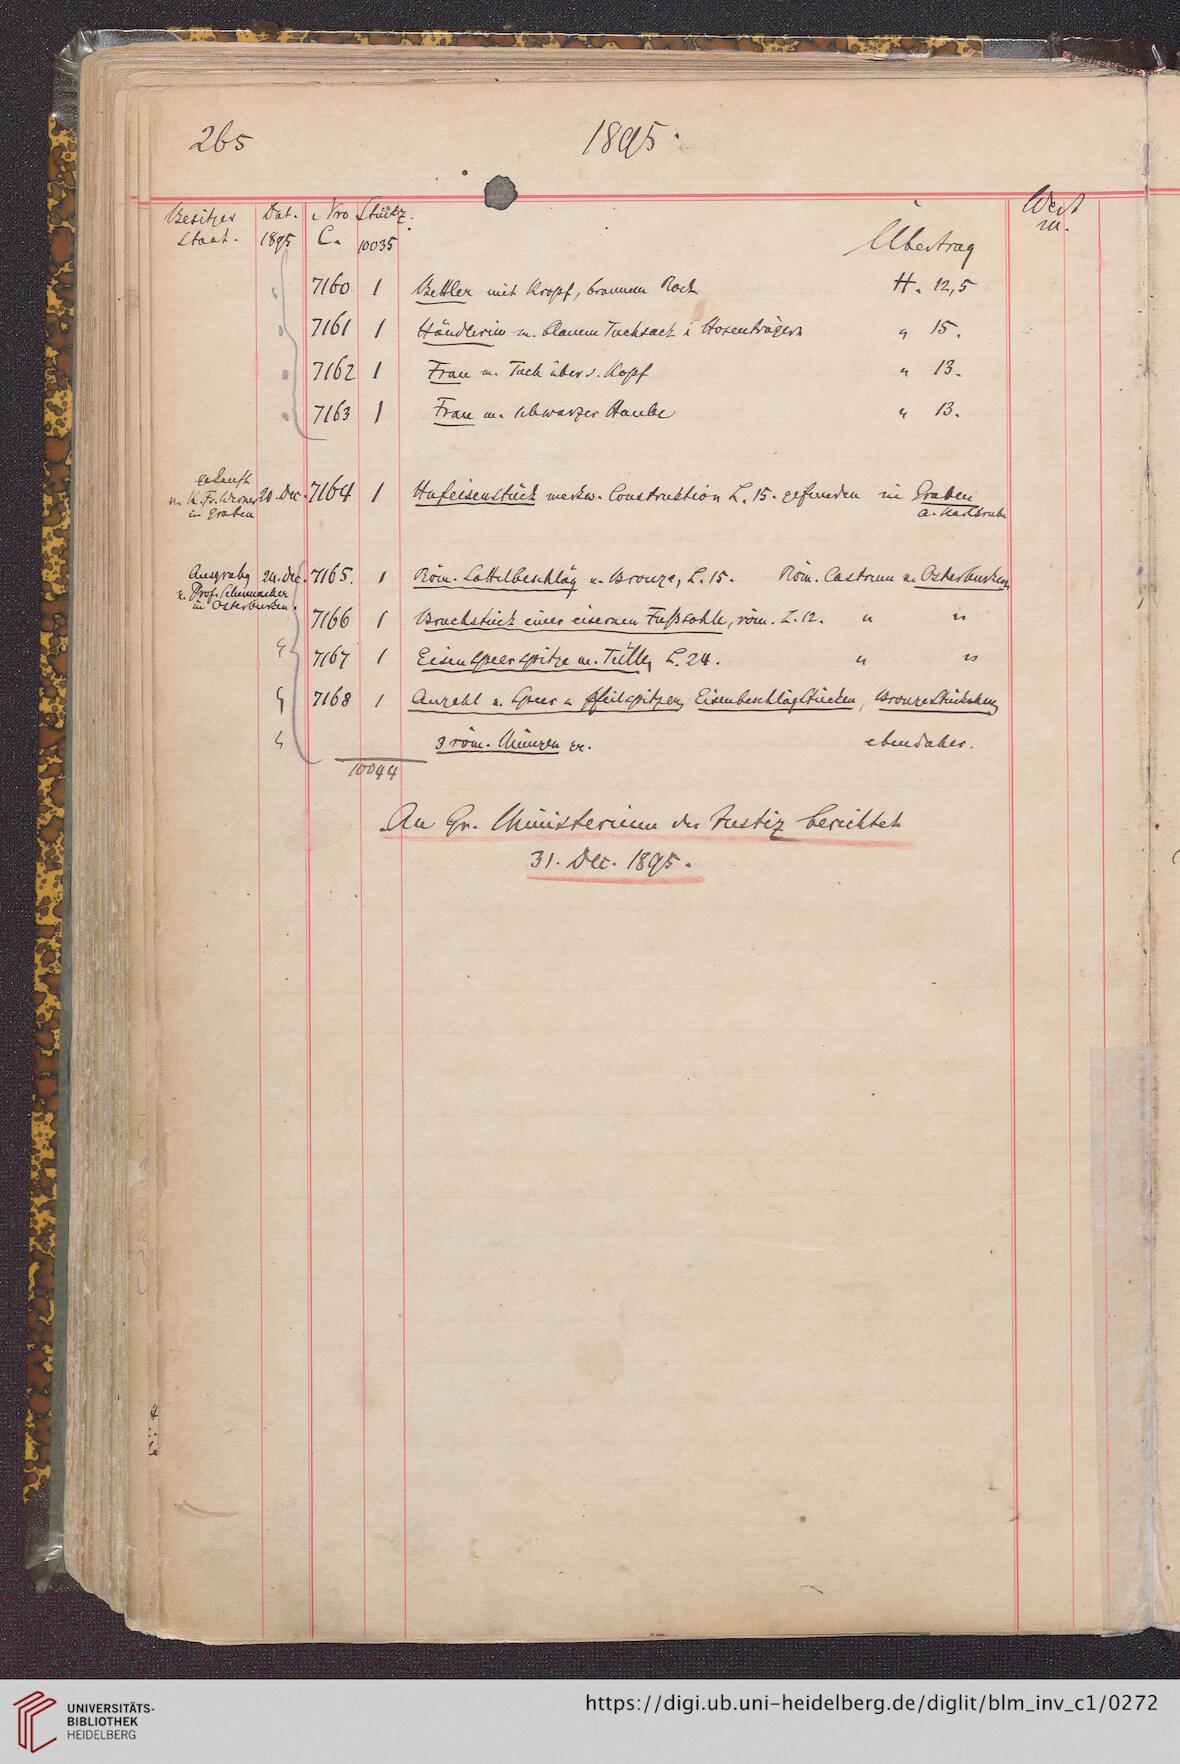 265
1895.
Besitzer Dat. Nro Stückz. Wert
Staat. 1895 C. 10035 Übertrag M.
7160 1 Bettler mit Kropf, braunem Rock H. 12,5
7161 1 Händlerin m. blauem Tuchsack & Hosenträgern " 15.
7162 1 Frau m. Tuch über d. Kopf " 13.
7163 1 Frau m. schwarzer Haube " 13.
gekauft
v. K. Fr. Werner 20. Dec. 7164 1 Hufeisenstück merkw. Construktion L. 15. gefunden in Graben
in Graben a. Karlsruhe
Ausgrabg 24. Dec. 7165. 1 Röm. Sattelbeschläg v. Bronze, L. 15. Röm. Castrum v. Osterburken
v. Prof. Schumacher
in Osterburken.
7166 1 Bruchstück einer eisernen Fußsohle, röm. L. 12. " "
7167 1 Eisenspeerspitze m. Tülle, L. 24. " "
7168 1 Anzahl v. Speer u. Pfeilspitzen, Eisenbeschlägstücken, Bronzestückchen,
3 röm. Münzen etc. ebendaher.
10044
An Gr. Ministerium der Justiz berichtet
31. Dec. 1895.
UNIVERSITÄTS-
BIBLIOTHEK
HEIDELBERG
https://digi.ub.uni-heidelberg.de/diglit/blm_inv_c1/0272